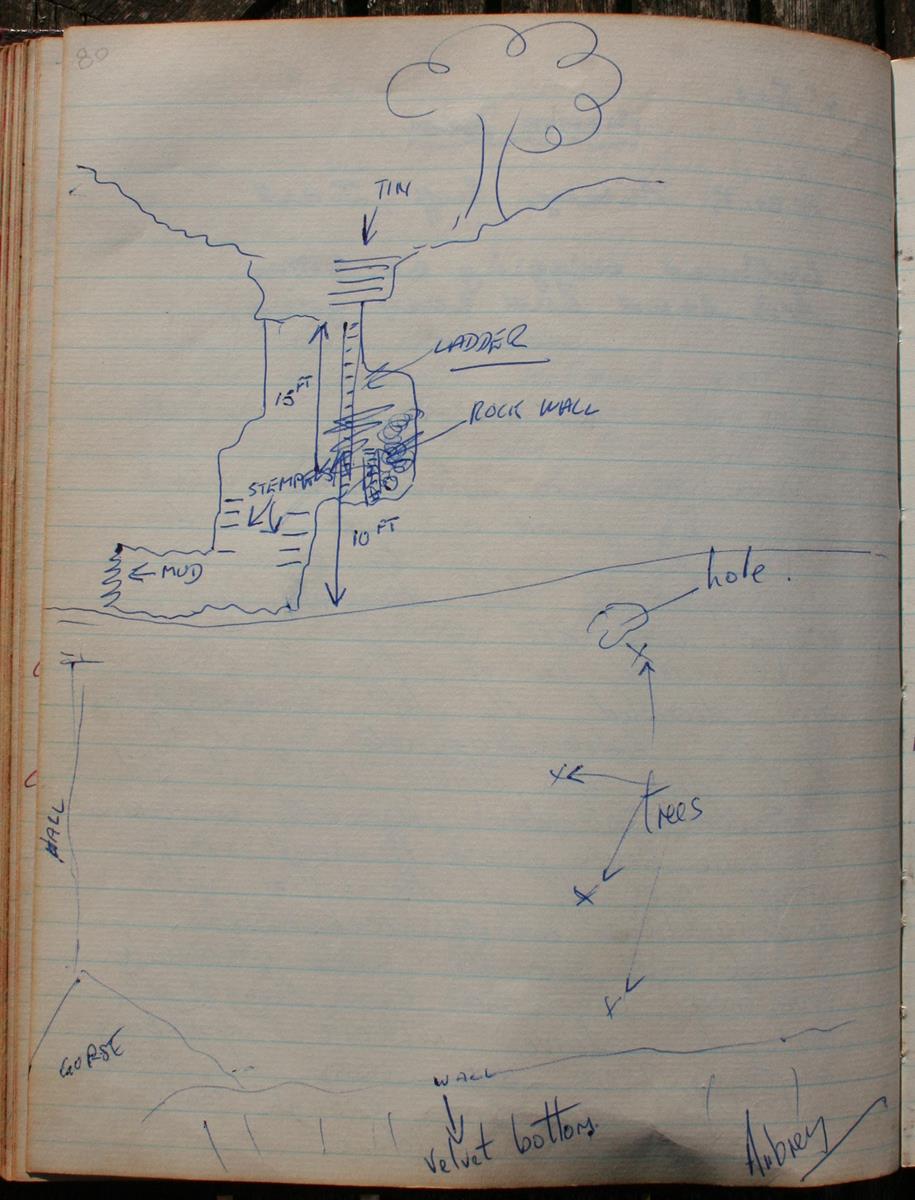 80
TIN
LADDER
15 FT
ROCK WALL
STEMPLES
10 FT
MUD
hole.
trees
WALL
GORSE
WALL
Velvet bottom
Aubrey